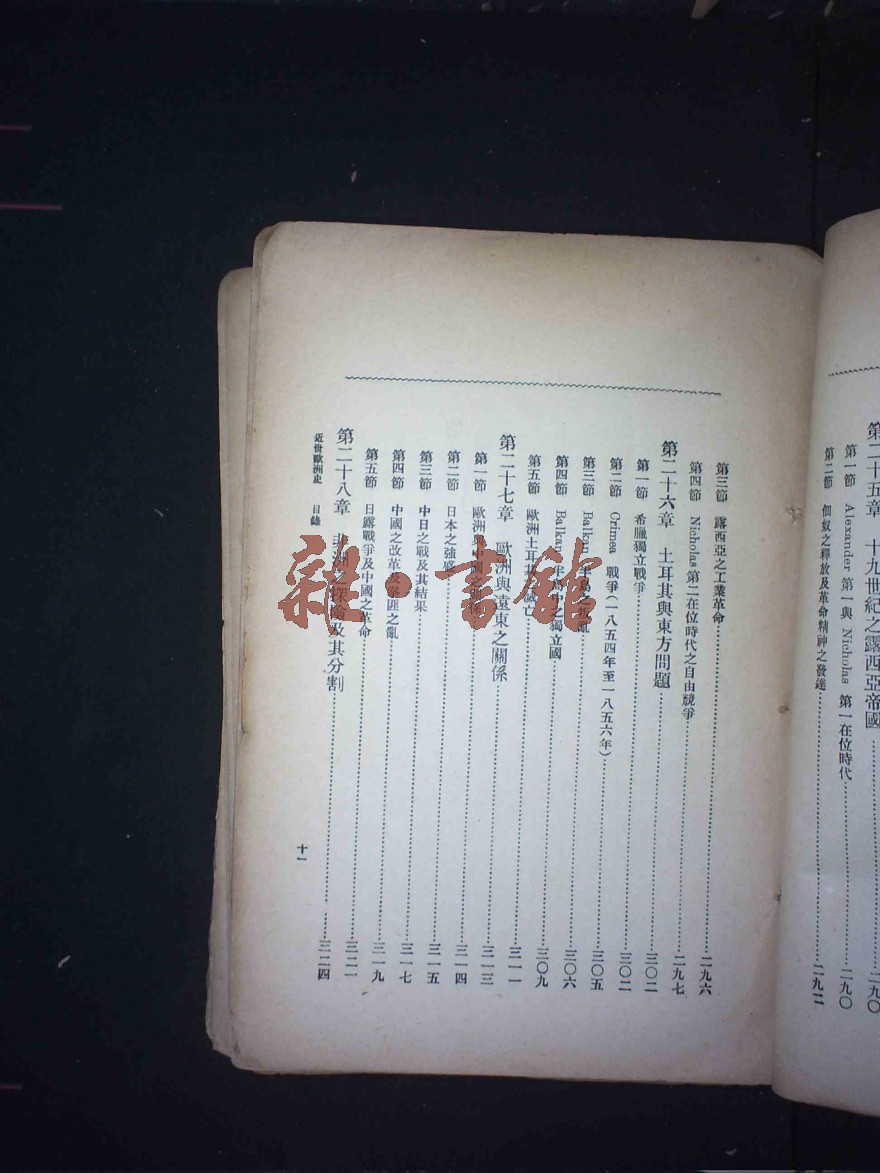 第二十五章 十九世紀之露西亞帝國……二九〇
第一節 Alexander 第一與 Nicholas 第一在位時代……二九〇
第二節 佃奴之釋放及革命精神之發達……二九二
第三節 露西亞之工業革命……二九六
第四節 Nicholas 第二在位時代之自由競爭……二九七
第二十六章 土耳其與東方問題……三〇二
第一節 希臘獨立戰爭……三〇二
第二節 Crimea 戰爭(一八五四年至一八五六年)……三〇五
第三節 Balkan 半島之叛亂……三〇六
第四節 Balkan 半島中之獨立國……三〇九
第五節 歐洲土耳其之衰亡……三一一
第二十七章 歐洲與遠東之關係……三一三
第一節 歐洲與中國之關係……三一四
第二節 日本之強盛……三一五
第三節 中日之戰及其結果……三一七
第四節 中國之改革及拳匪之亂……三一九
第五節 日露戰爭及中國之革命……三二一
第二十八章 非洲之探險及其分割……三二四
近世歐洲史 目錄
十一
雜·書館